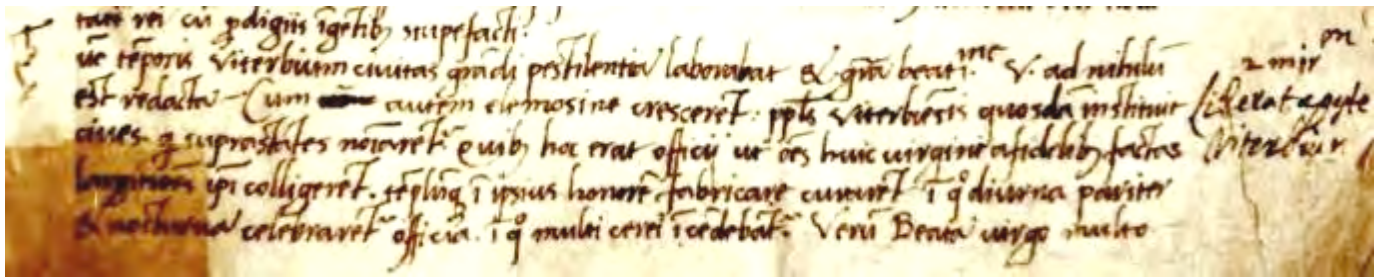 rei cū ꝓdigiis īgētibꝫ stupefacti.
tēporis Viterbium civitas grādi pestilentia laborabat & gr̄a beati. me V. ad nihilū
est redacta Cum autem elemosine cresceret: ppl's Viterbiēsis quosdā instituit
cives qͥ suprastātes noīarēt. Quibꝫ hoc erat officiū ut oēs huic virgine a fidelibꝫ factas
largitiones ipī colligerēt. tēplūqꝫ ī ipsius honorē fabricare curarēt ī qͦ diurna pariter
& nocturna celebrarēt officia. ī qͦ multi cerei īcēdebāt. Verū Beata virgo multo
2 mir m
liberat a pyte
Viterbiū